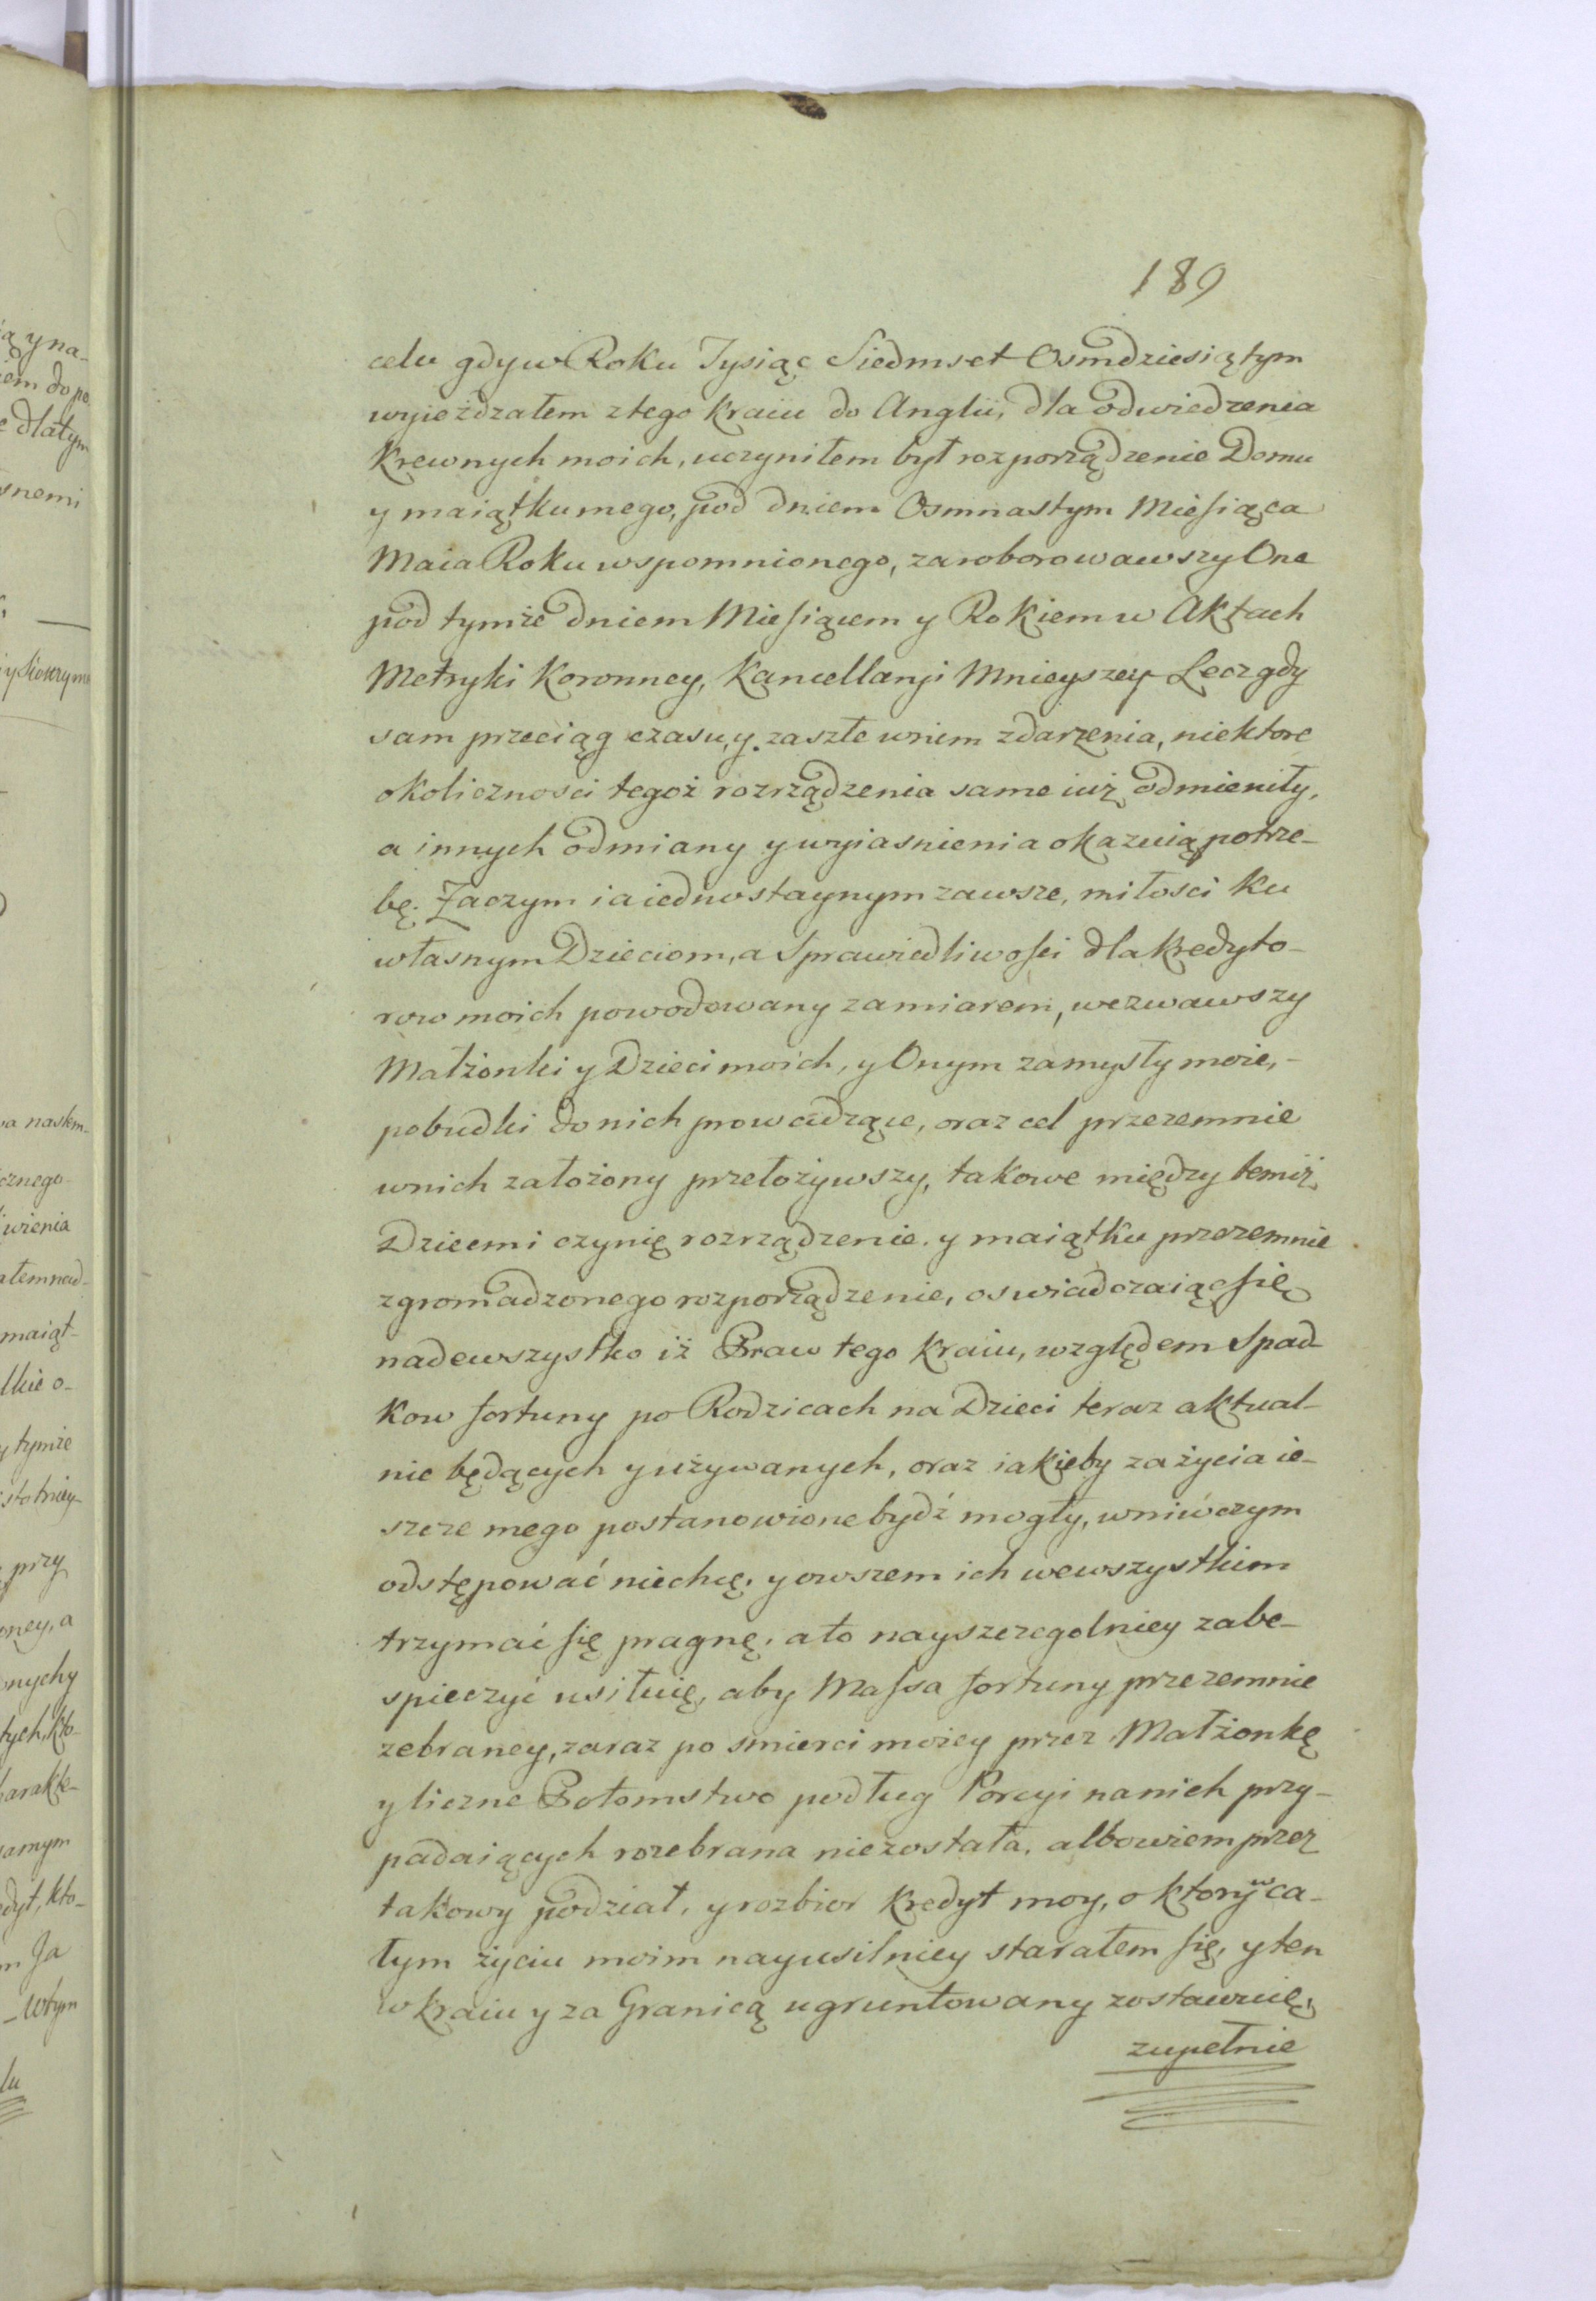 189
celu gdy w Roku Tysiąc Siedmset Osmdziesiątym
wyieżdzałem z tego kraiu do Anglii, dla odwiedzenia
krewnych moich, uczyniłem był rozporządzenie Domu
y maiątku mego, pod dniem Osmnastym Miesiąca
Maia Roku wspomnionego, zaroborowawszy One
pod tymże dniem Miesiącem y Rokiem w Aktach
Metryki Koronney, Kancellaryi Mnieyszey Lecz gdy
sam przeciąg czasu, y zaszłe wniem zdarzenia, niektore
okolicznosci tegoż rozrządzenia same iuż odmieniły,
a innych odmiany y wyiasnienia okazuią potrze-
bę. Zaczym ia iednostaynym zawsze, miłosci ku
własnym Dzieciom, a Sprawiedliwości dla kredyto-
row moich powodowany zamiarem, wezwawszy
Małżonki y Dzieci moich, y Onym zamysły moie, -
pobudki do nich prowadzące, oraz cel przezemnie
wnich założony przełożywszy, takowe między temiż
Dziećmi czynię rozrządzenie. y maiątku przezemnie
zgromadzonego rozporządzenie, oswiadczaiąc się
nadewszystko iż Praw tego kraiu, względem Spad-
kow fortuny po Rodzicach na Dzieci teraz aktual-
nie będących y używanych, oraz iakieby za życia ie-
szcze mego postanowione bydź mogły, wniwczym
odstępować niechcę, y owszem ich wewszystkim
trzymać się pragnę, a to nayszczegolniey zabe-
spieczyć usiłuię, aby Massa fortuny przezemnie
zebraney, zaraz po smierci moiey przez Małżonkę
y liczne Potomstwo podług Porcyi na nich przy-
padaiących rozebrana niezostała, albowiem przez
takowy podział, y rozbior kredyt moy, o który w ca-
łym życiu moim nayusilniey starałem się, y ten
w kraiu y za Granicą ugruntowany zostawuię,
zupełnie
ią y na-
iem do po-
e dla tym
snemi
y Siostrzym
va naskm-
cznego
iwienia
ałem nad-
maiąt-
lkie o-
y tymże
stotniey-
przy
oney, a
onych y
tych, kto-
harakte-
samym
edyt, kto-
m Ja
- wtym
lu